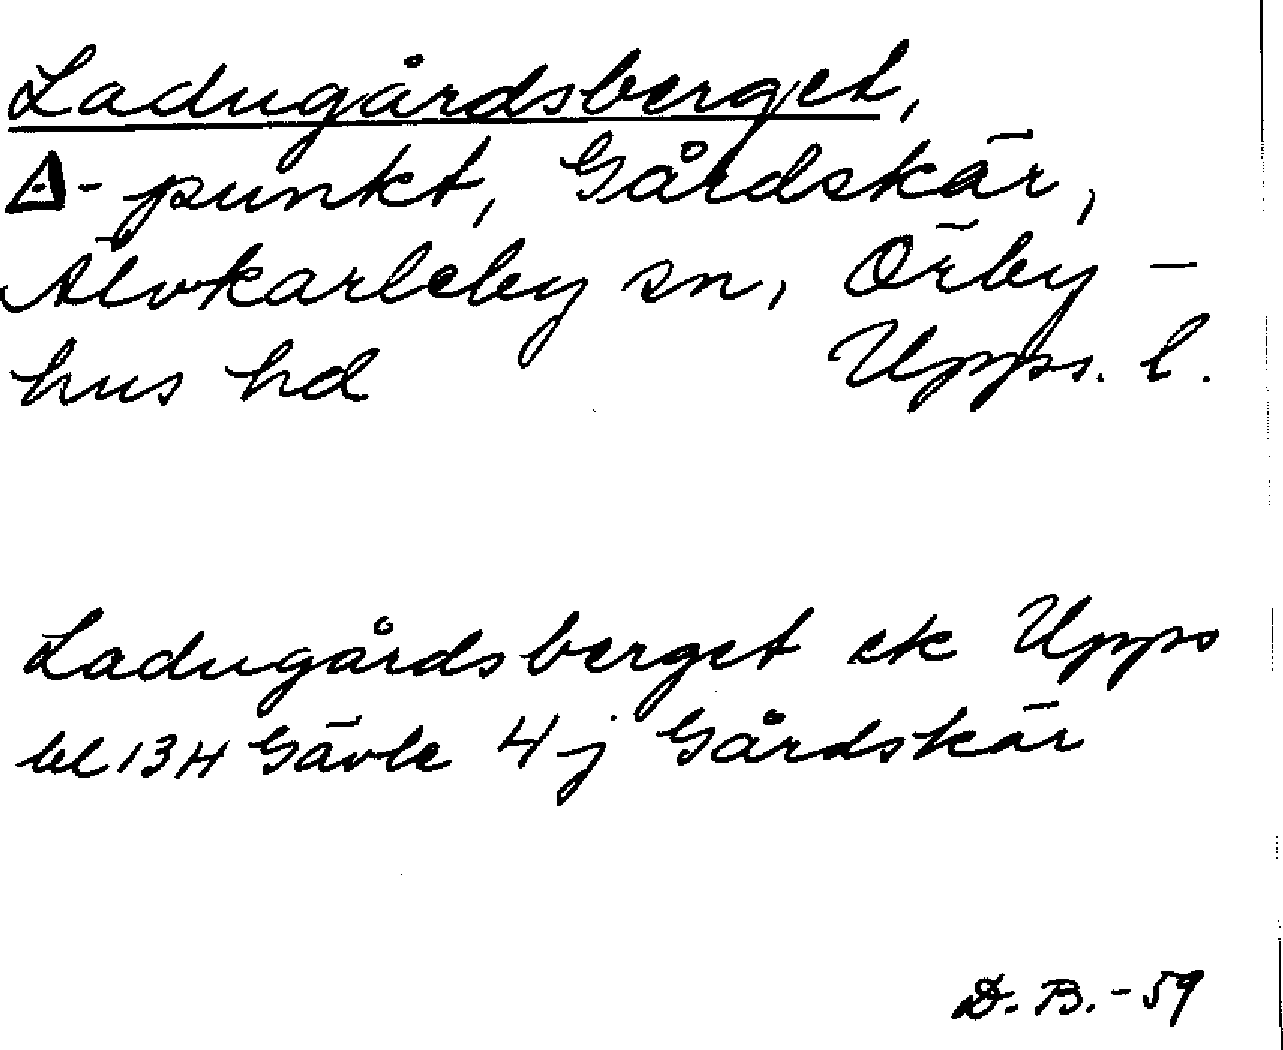 Ladugårdsberget,
∆-punkt, Gårdskär,
Älvkarleby sn, Örby-
hus hd Upps. l.
Ladugårdsberget ek Upps
bl 134 Gävle 4j Gårdskär
D.B.-59